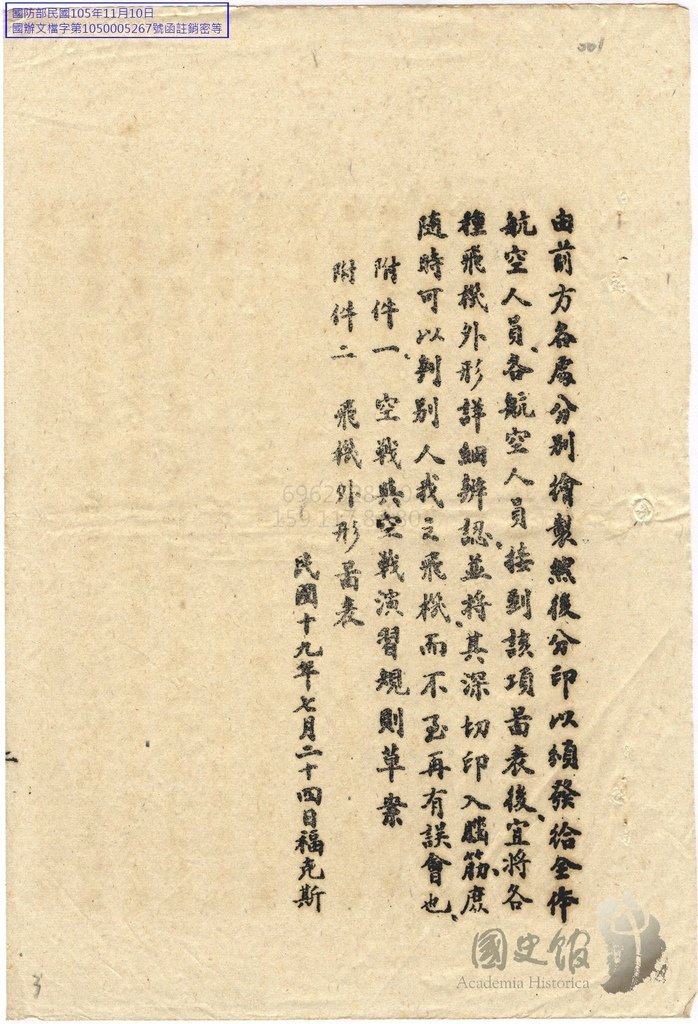 國防部民國105年11月10日
國辦文檔字第1050005267號函註銷密等
001
由前方各處分別繪製然後分印以頒發給全体
航空人員、各航空人員接到該項啚表後、宜將各
種飛機外形詳細辨認、並將其深切印入腦筋、庶
随時可以判別人我之飛機、而不至再有誤會也、
附件一、空戰與空戰演習規則草案
附件二 飛機外形啚表
民國十九年七月二十四日福克斯
3
國史館
Academia Historica